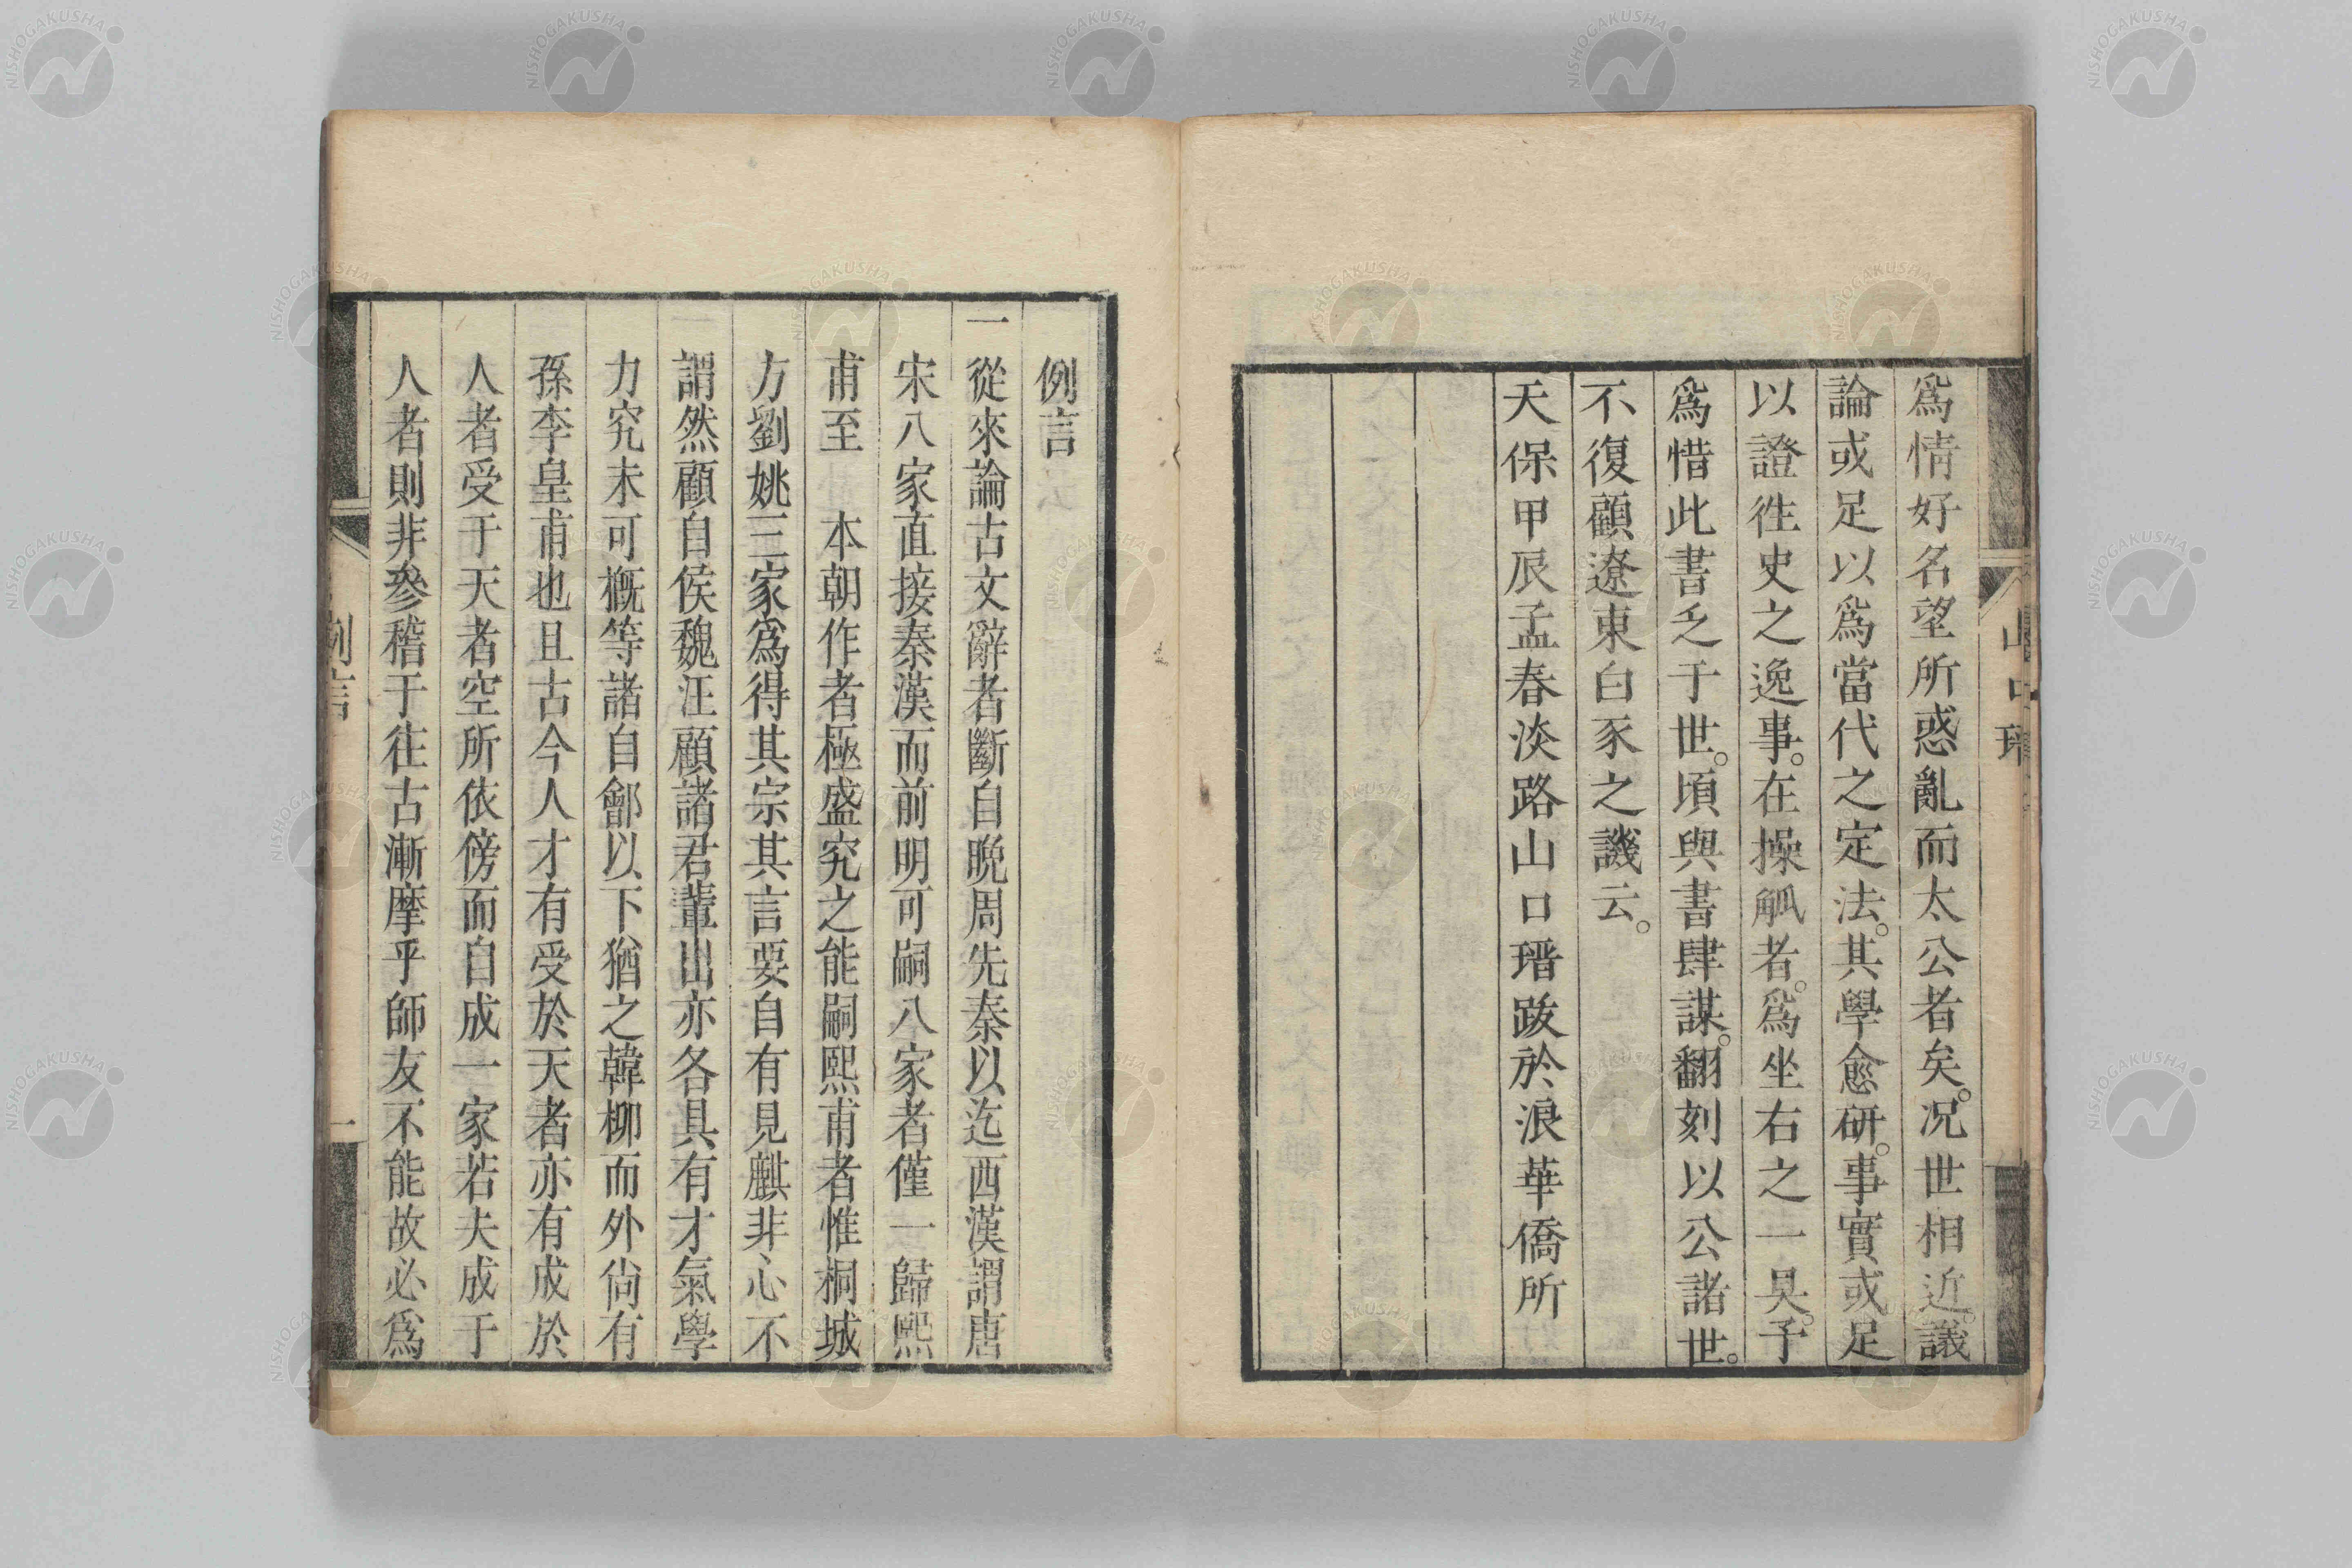 爲情好名望所惑亂而太公者矣。况世相近議
論或足以爲當代之定法。其學愈研。事實或足
以證徃史之逸事。在操觚者。爲坐右之一具。予
爲惜此書乏于世。頃與書肆謀。翻刻以公諸世。
不復顧遼東白豕之譏云。
天保甲辰孟春淡路山口瑨跋於浪華僑所
例言
一從來論古文辭者斷自晚周先秦以迄西漢謂唐
宋八家直接秦漢而前明可嗣八家者僅一歸熙
甫至 本朝作者極盛究之能嗣熙甫者惟桐城
方劉姚三家爲得其宗其言要自有見麒非心不
謂然顧自侯魏汪顧諸君輩出亦各具有才氣學
力究未可槪等諸自鄶以下猶之韓柳而外尙有
孫李皇甫也且古今人才有受於天者亦有成於
人者受于天者空所依傍而自成一家若夫成于
人者則非參稽于往古漸摩乎師友不能故必爲
例言
一
NISHOGAKUSHA